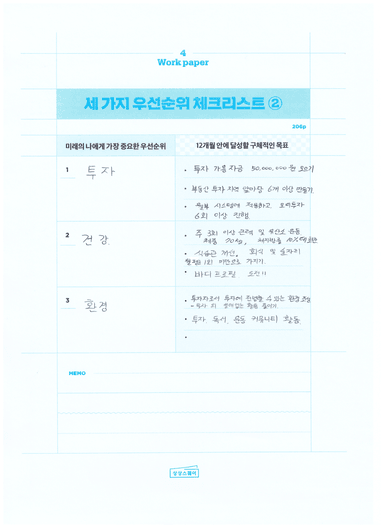 4
Work paper
세 가지 우선순위 체크리스트 ②
206p
미래의 나에게 가장 중요한 우선순위
12개월 안에 달성할 구체적인 목표
1 투자
• 투자 가용 자금 50,000,000원 모으기
• 부동산 투자 지역 앞마당 6개 이상 만들기
• 월부 시스템에 적용하고 모의투자
6회 이상 진행
2 건강
• 주 3회 이상 근력 및 유산소 운동
체중 70kg, 체지방률
• 식습관 개선, 회식 및 술자리
월 1회 미만으로 가지기
• 바디프로필
3 환경
• 투자자로서 투자에 전념할 수 있는 환경 조성
• 투자, 독서, 운동 커뮤니티 활동
•
MEMO
상상스퀘어